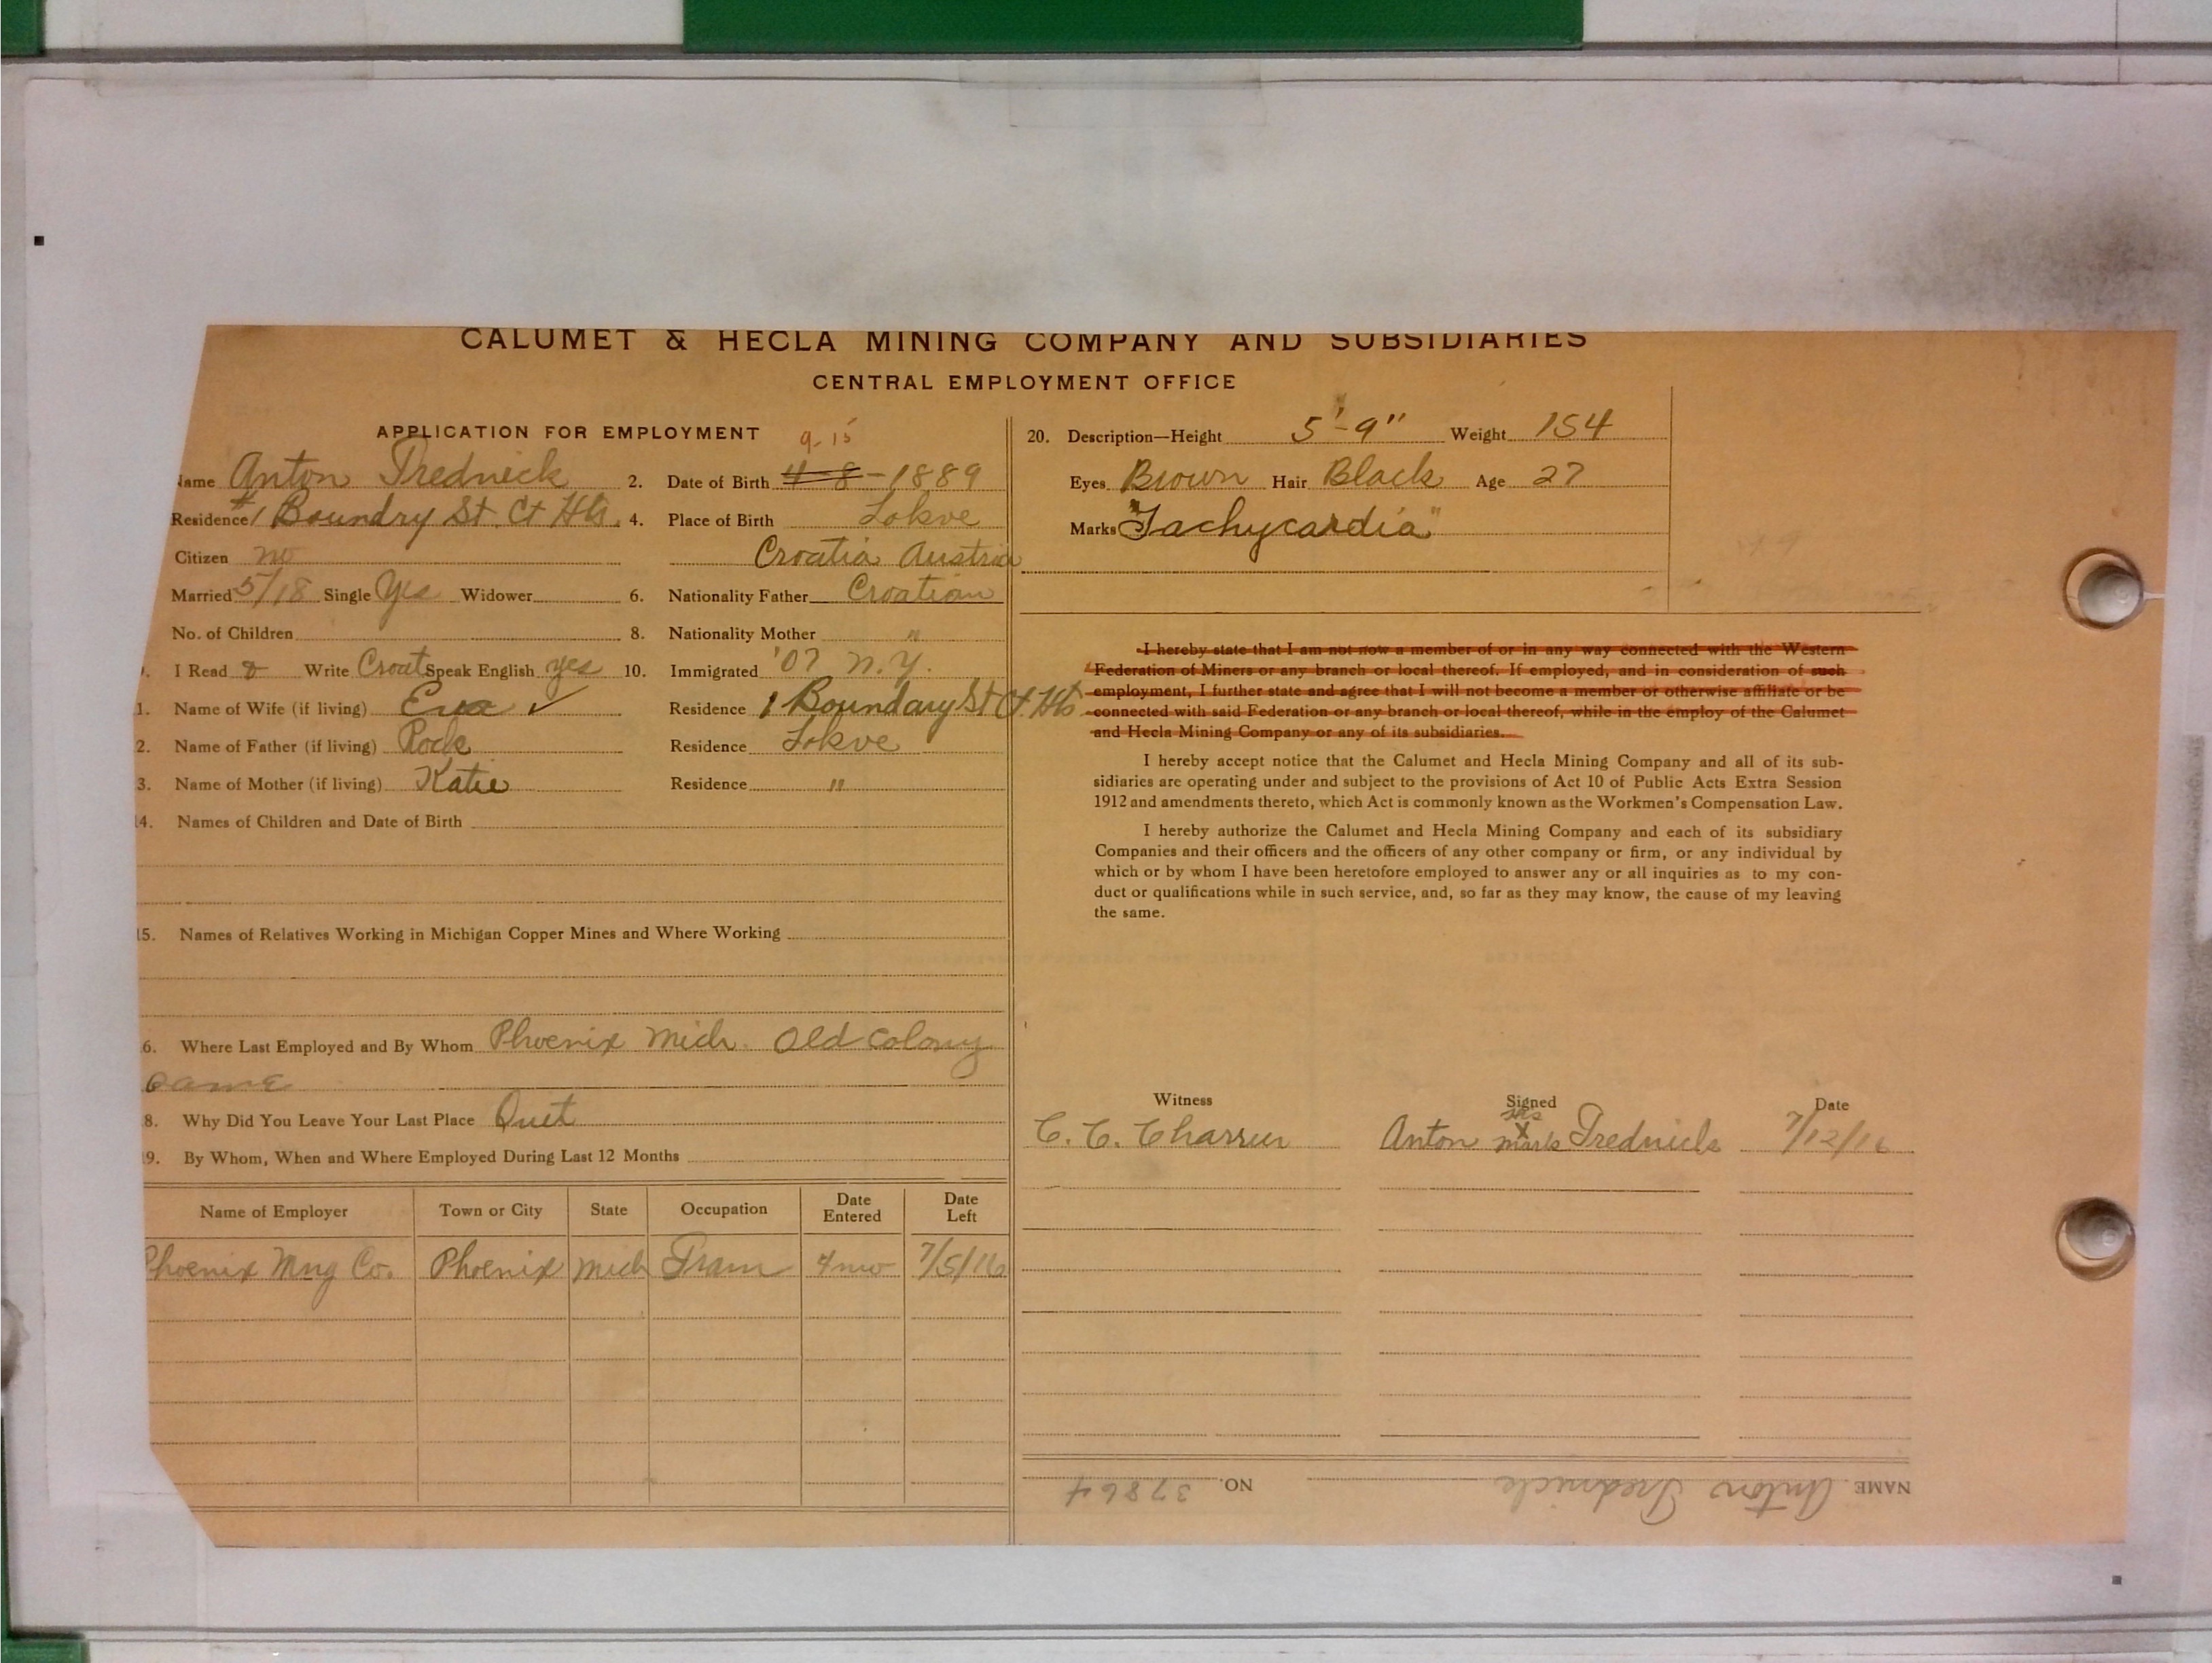 CALUMET & HECLA MINING COMPANY AND SUBSIDIARIES
CENTRAL EMPLOYMENT OFFICE
APPLICATION FOR EMPLOYMENT
9-15
Name Anton Trednick 2. Date of Birth 4-8-1889
Residence #1 Boundry St. Ct Hts. 4. Place of Birth Lokve
Citizen no Croatia Austria
Married 5/18 Single Yes Widower 6. Nationality Father Croatian
No. of Children 8. Nationality Mother "
I Read & Write Croat Speak English yes 10. Immigrated '07 N.Y.
1. Name of Wife (if living) Eva ✓ Residence 1 Boundary St Ct Hts
2. Name of Father (if living) Rode Residence Lokve
3. Name of Mother (if living) Katie Residence "
14. Names of Children and Date of Birth
15. Names of Relatives Working in Michigan Copper Mines and Where Working
6. Where Last Employed and By Whom Phoenix Mich. Old Colony
same
8. Why Did You Leave Your Last Place Quit
19. By Whom, When and Where Employed During Last 12 Months
Name of Employer Town or City State Occupation Date Entered Date Left
Phoenix Mng Co. Phoenix Mich Tram 4 mo 7/5/16
20. Description—Height 5'-9" Weight 154
Eyes Brown Hair Black Age 27
Marks "Tachycardia"
I hereby state that I am not now a member of or in any way connected with the Western
Federation of Miners or any branch or local thereof. If employed, and in consideration of such
employment, I further state and agree that I will not become a member or otherwise affiliate or be
connected with said Federation or any branch or local thereof, while in the employ of the Calumet
and Hecla Mining Company or any of its subsidiaries.
I hereby accept notice that the Calumet and Hecla Mining Company and all of its sub-
sidiaries are operating under and subject to the provisions of Act 10 of Public Acts Extra Session
1912 and amendments thereto, which Act is commonly known as the Workmen's Compensation Law.
I hereby authorize the Calumet and Hecla Mining Company and each of its subsidiary
Companies and their officers and the officers of any other company or firm, or any individual by
which or by whom I have been heretofore employed to answer any or all inquiries as to my con-
duct or qualifications while in such service, and, so far as they may know, the cause of my leaving
the same.
Witness Signed Date
his
C. C. Anton X Trednick 7/12/16
mark
NAME Anton Trednick NO. 37864